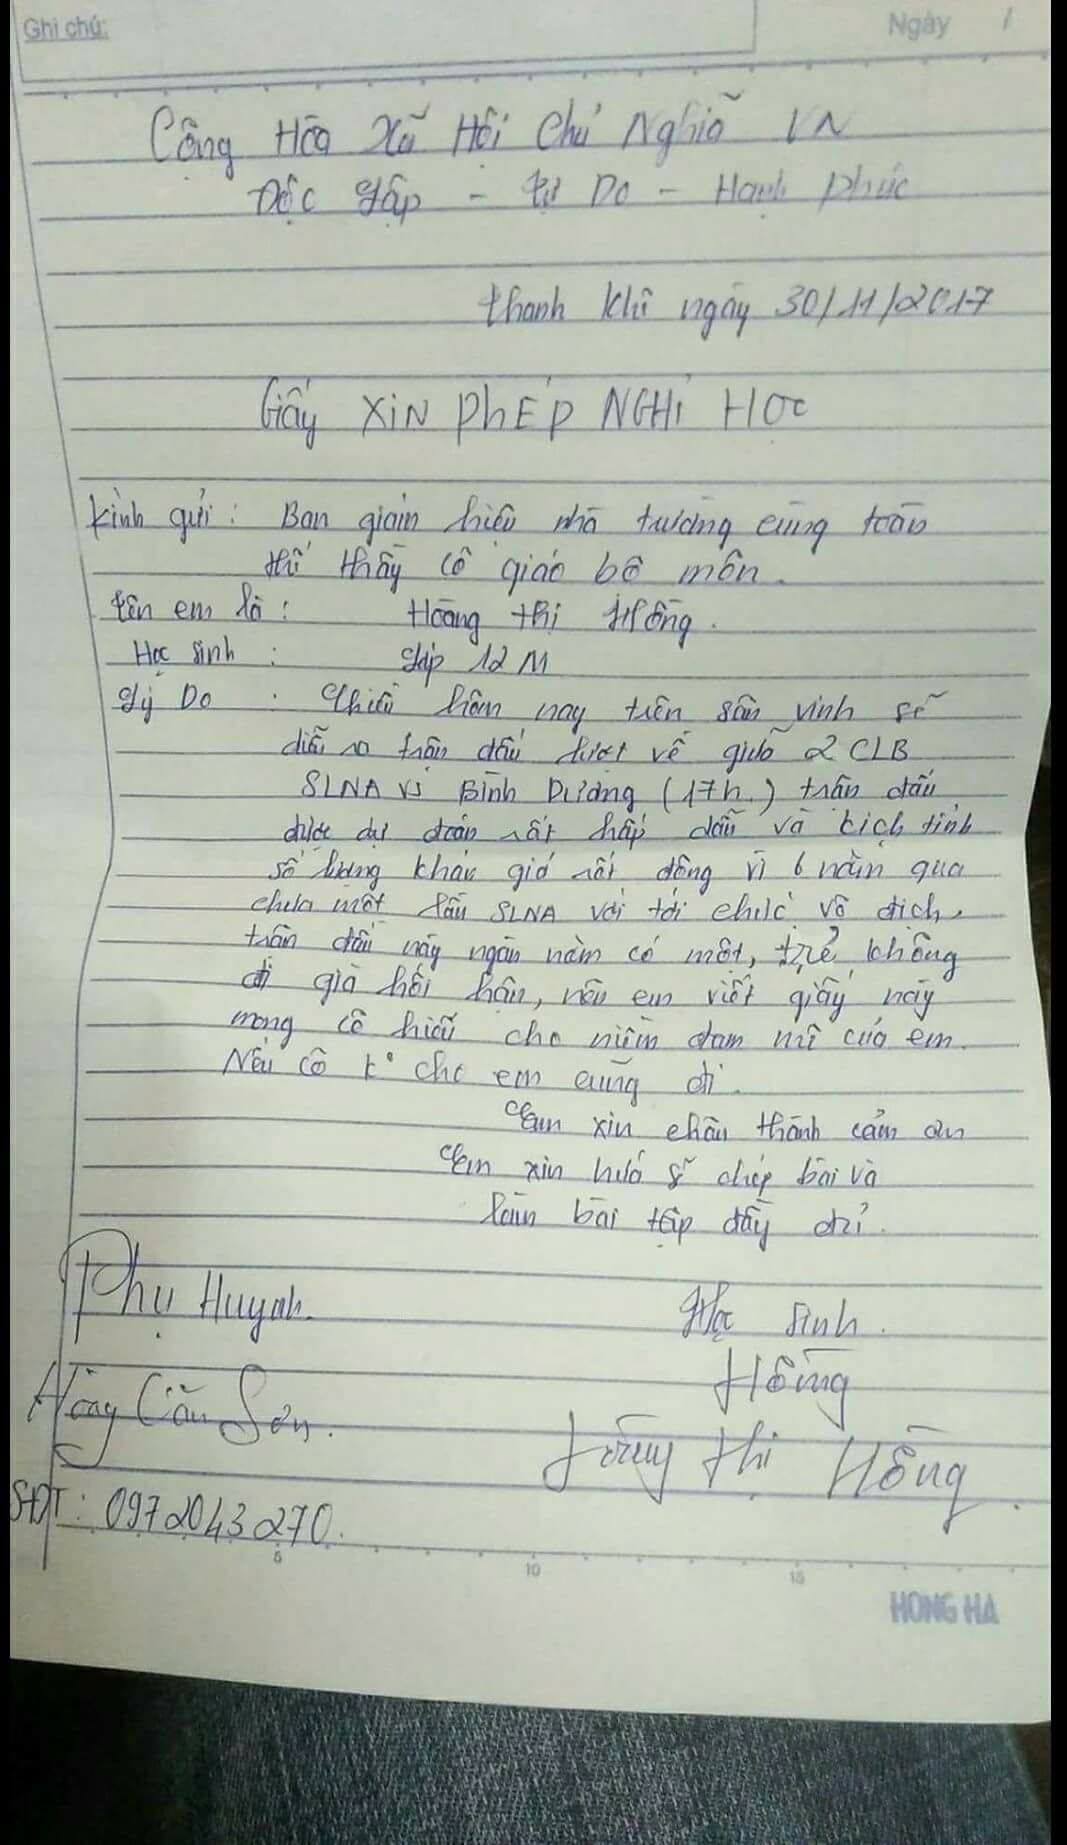 Ghi chú:
Ngày /
Cộng Hòa Xã Hội Chủ Nghĩa VN
Độc Lập - Tự Do - Hạnh Phúc
Thanh Khê ngày 30/11/2017
Giấy XIN PHÉP NGHỈ HỌC
Kính gửi: Ban giám hiệu nhà trường cùng toàn
thể thầy cô giáo bộ môn.
Tên em là: Hoàng Thị Hồng.
Học sinh: Lớp 12M
Lý Do: Chiều hôm nay trên sân vinh sẽ
diễn ra trận đấu lượt về giữa 2 CLB
SLNA vs Bình Dương (17h.) trận đấu
được dự đoán rất hấp dẫn và kịch tính
số lượng khán giả rất đông vì 6 năm qua
chưa một lần SLNA với tới chức vô địch,
trận đấu này ngàn năm có một, trẻ không
đi già hối hận, nên em viết giấy này
mong cô hiểu cho niềm đam mê của em.
Nếu cô k° cho em cũng đi.
Em xin chân thành cảm ơn
Em xin hứa sẽ chép bài và
làm bài tập đầy đủ.
Phụ Huynh.
Học sinh.
Hồng
Hoàng Văn Sơn.
Hoàng Thị Hồng.
SĐT: 0972043270.
5 10 15
HONG HA